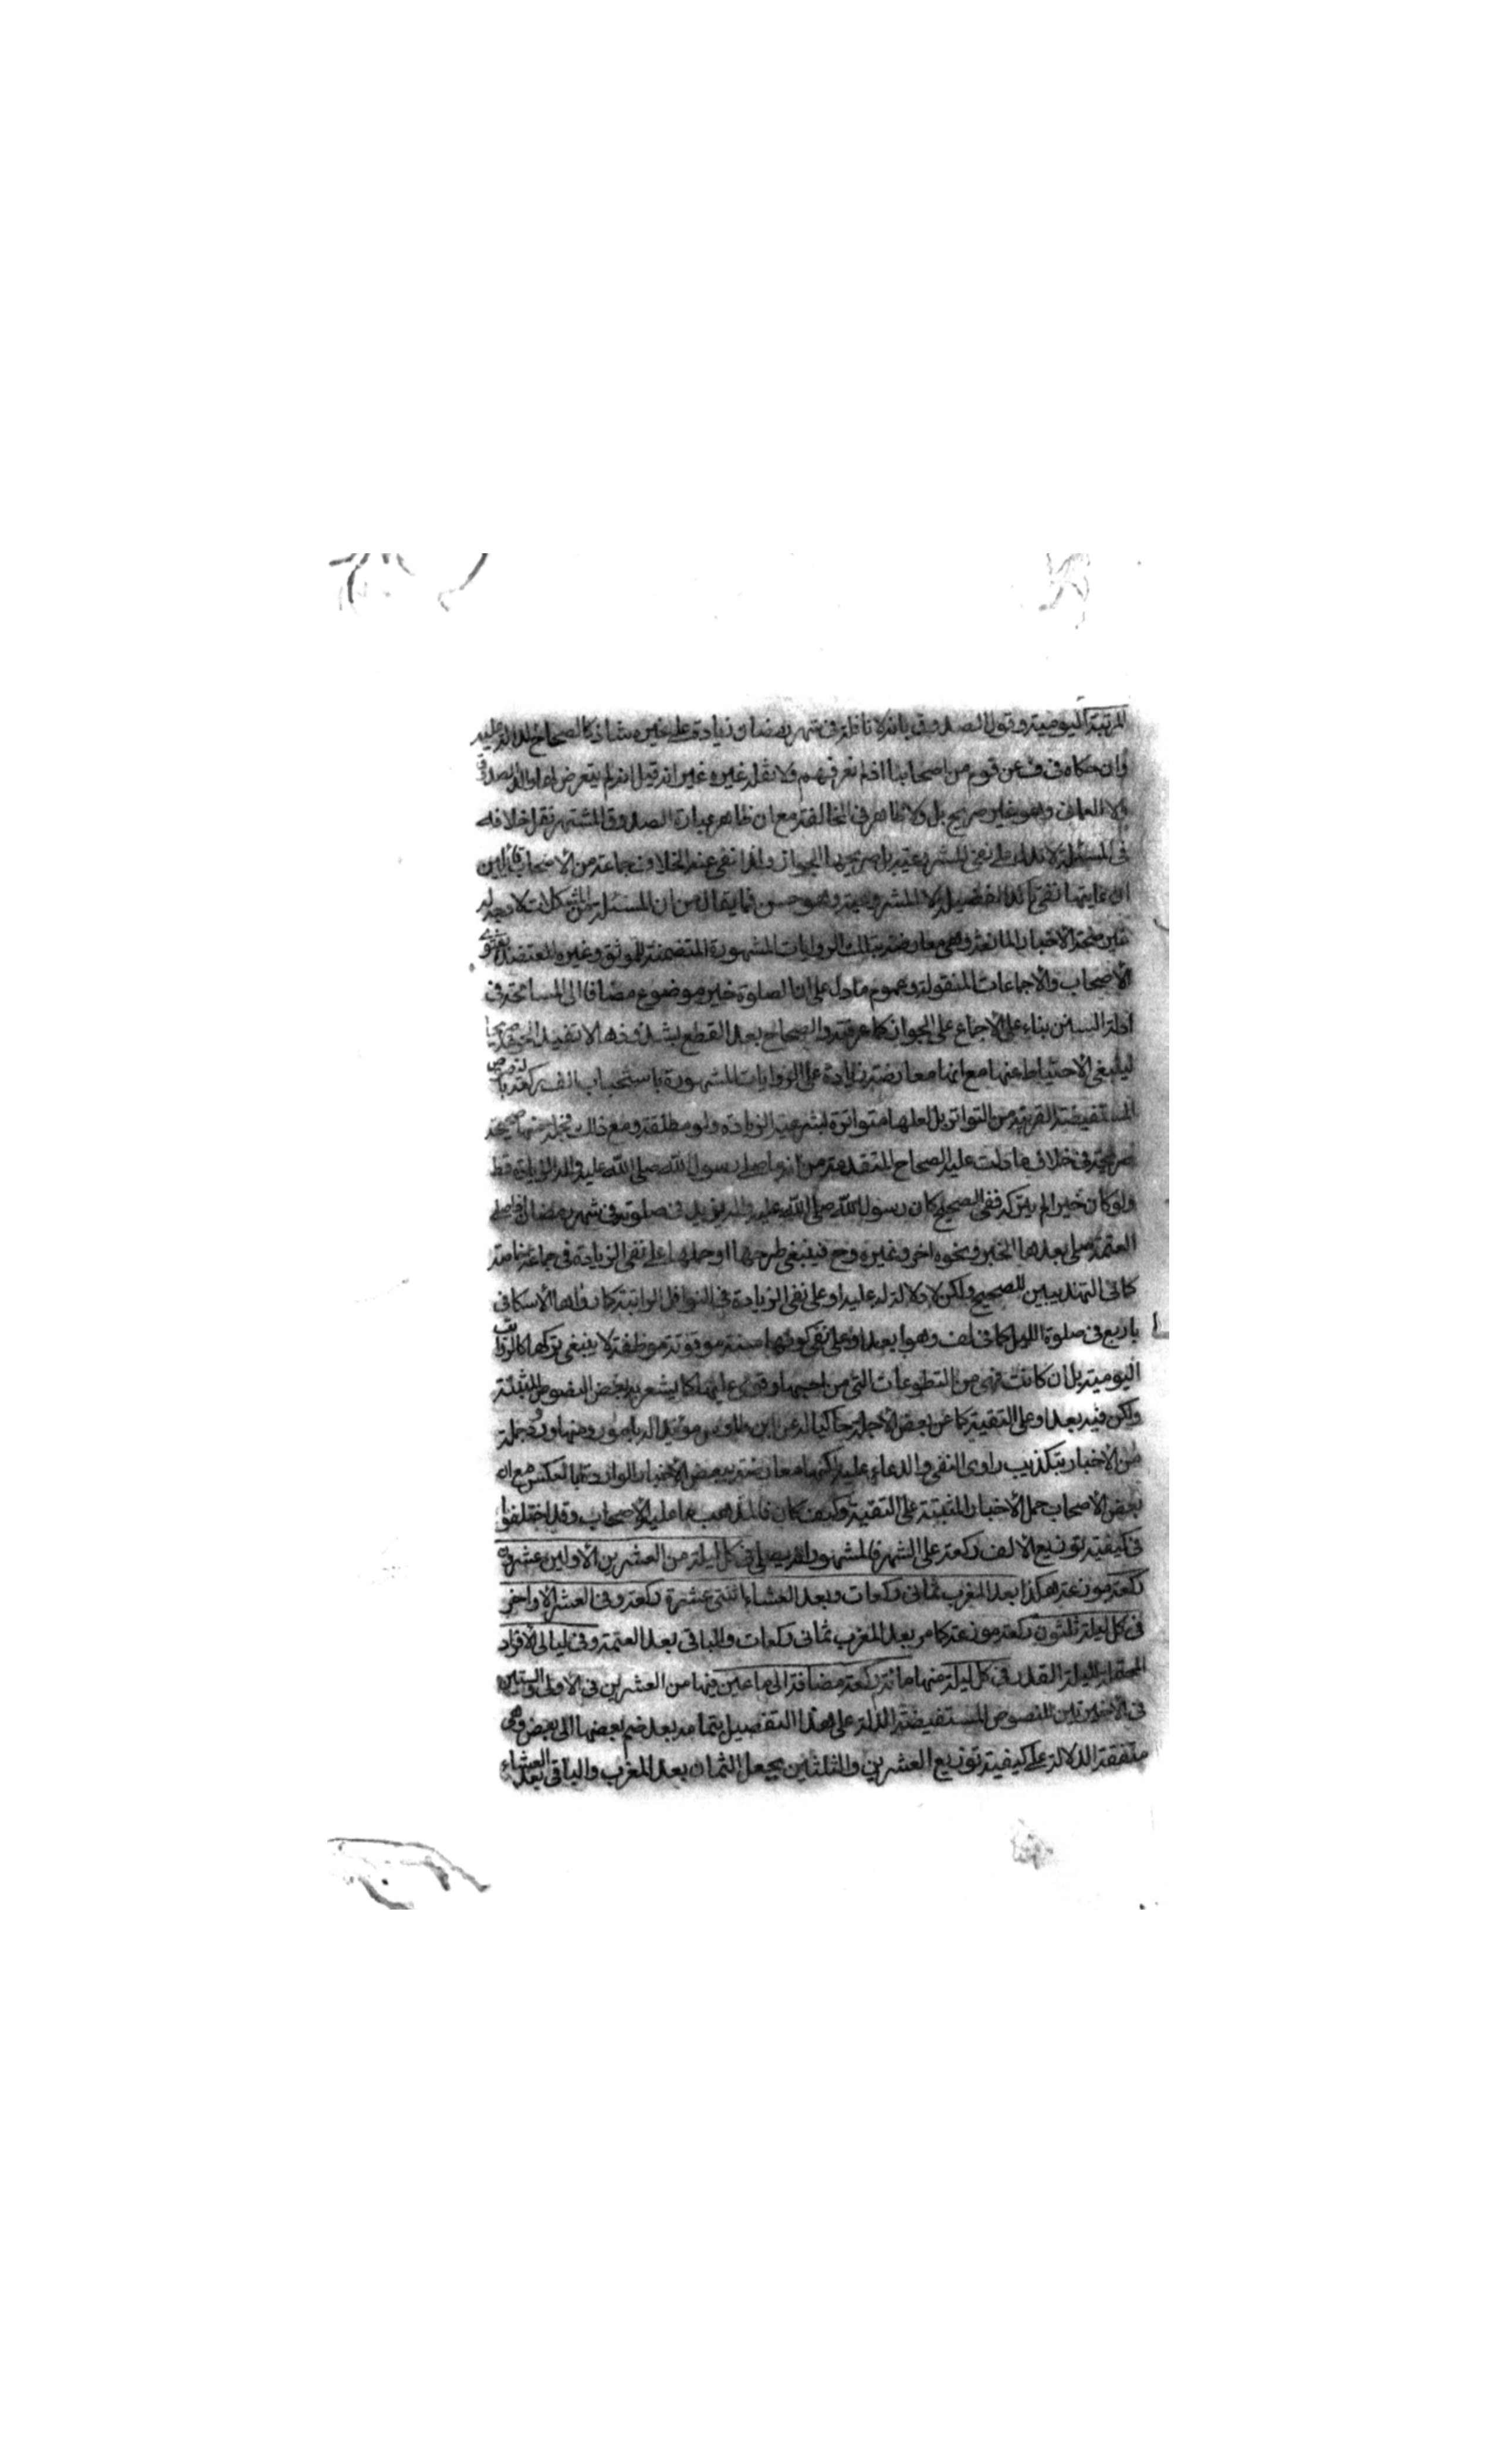 المرتبة اليومية وقول الصدوق بانه لا نافلة في شهر رمضان زيادة على غيره شاذ كالصحاح الدالة عليه
وان حكاه في ف عن قوم من اصحابنا اذ لم نعرفهم ولا نقله غيره غير انه قيل انه لم يتعرض لها والد الصدوق
ولا العماني وهو غير صريح بل ولا ظاهر في المخالفة مع ان ظاهر عبارة الصدوق المشتهر نقل خلافه
في المسئلة لا تدل على نفي المشروعية بل صريحها الجواز ولذا نفى عنه الخلاف جماعة من الاصحاب قائلين
ان غايتها نفي تأكد الفضيلة لا المشروعية وهو حسن فما يقال من ان المسئلة من المشكلات لا وجه له
الاخبار المانعة وهي معارضة بتلك الروايات المشهورة المتضمنة للموثق وغيره المعتضدة بفتوى
الاصحاب والاجماعات المنقولة وعموم ما دل على ان الصلوة خير موضوع مضافا الى المسامحة في
ادلة السنن بناء على الاجماع على الجواز كما عرفته والصحاح بعد القطع بشذوذها لا تفيد
لينبغي الاحتياط عنها مع انها معارضة زيادة على الروايات المشهورة باستحباب الف ركعة
المستفيضة القريبة من التواتر بل لعلها متواترة لشرعية الزيادة ولو مطلقة ومع ذلك فجملة منها صحيحة
صريحة في خلاف ما دلت عليه الصحاح المتقدمة من انه ما صلى رسول الله صلى الله عليه واله الزيادة قط
ولو كان خيرا لم يتركه ففي الصحيح كان رسول الله صلى الله عليه واله يزيد في صلوته في شهر رمضان اذا صلى
العتمة صلى بعدها الخبر ونحوه اخر وغيره وح فينبغي طرحها او حملها على نفي الزيادة في جماعة خاصة
كما في التهذيبين للصحيح ولكن لا دلالة له عليه او على نفي الزيادة في النوافل الراتبة كما زادها الاسكافي
باربع في صلوة الليل كما في لف وهو ابعد او على نفي كونها سنة موقوتة موظفة لا ينبغي تركها كالرواتب
اليومية بل ان كانت فهي من التطوعات التي من احبها وقوى عليها كما يشعر به بعض النصوص المثبتة
ولكن فيه بعد او على التقية كما عن بعض الاجلة حاكيا له عن ابن طاوس مؤيدا له بامور ومنها ورود جملة
من الاخبار بتكذيب راوي النفي والدعاء عليه لكنها معارضة ببعض الاخبار الواردة بالعكس مع ان
بعض الاصحاب حمل الاخبار المثبتة على التقية وكيف كان فالمذهب ما عليه الاصحاب وقد اختلفوا
في كيفية توزيع الالف ركعة على الشهر فالمشهور انه يصلي في كل ليلة من العشرين الاولين عشرون
ركعة موزعة هكذا بعد المغرب ثماني ركعات وبعد العشاء اثنتي عشرة ركعة وفي العشر الاواخر
في كل ليلة ثلثون ركعة موزعة كما مر بعد المغرب ثماني ركعات والباقي بعد العتمة وفي ليالي الافراد
المحتملة لليلة القدر في كل ليلة منها مائة ركعة مضافة الى ما عين فيها من العشرين في الاولى والستين
في الاخيرتين للنصوص المستفيضة الدالة على هذا التفصيل بتمامه بعد ضم بعضها الى بعض وهي
متفقة الدلالة على كيفية توزيع العشرين والثلثين بجعل الثمان بعد المغرب والباقي بعد العشاء